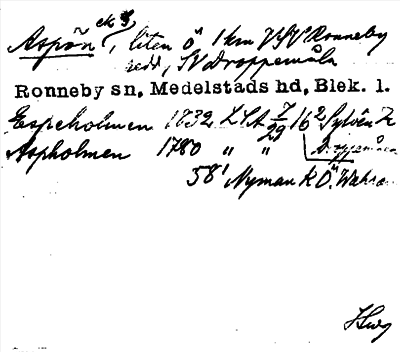 Aspön ek 3, liten ö 1 km VSV Ronneby
redd, SV Droppemåla
Ronneby sn, Medelstads hd, Blek. l.
Espeholmen 1832 LSA 7/29 16² Sylvén K
Aspholmen 1780 " " Droppemåla
58' Nyman K Ö.